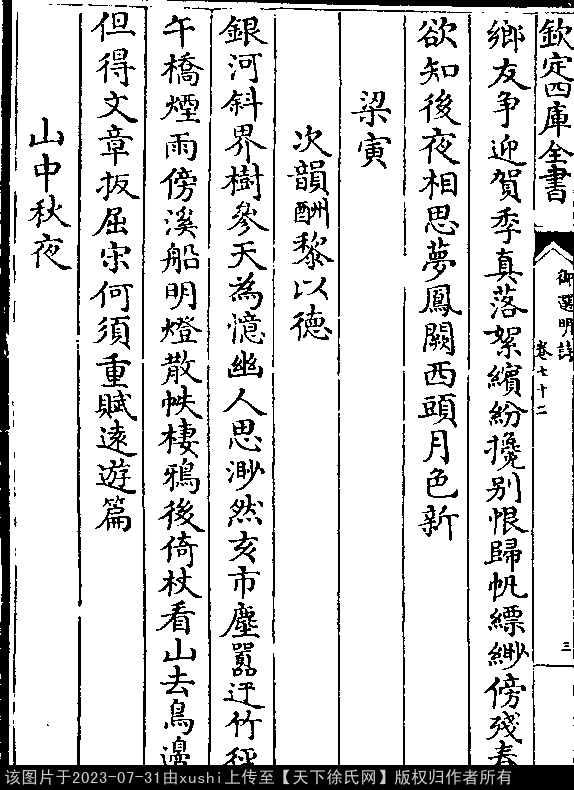 欽定四庫全書
御選明詩
卷七十二
三
鄉友争迎賀季真落絮繽紛攙别恨歸帆縹緲傍殘春
欲知後夜相思夢鳳闕西頭月色新
梁寅
次韻酬黎以德
銀河斜界樹參天為憶幽人思渺然亥市塵囂迂竹徑
午橋煙雨傍溪船明燈散帙棲鴉後倚杖看山去鳥邊
但得文章扳屈宋何須重賦遠遊篇
山中秋夜
该图片于2023-07-31由xushi上传至【天下徐氏网】版权归作者所有